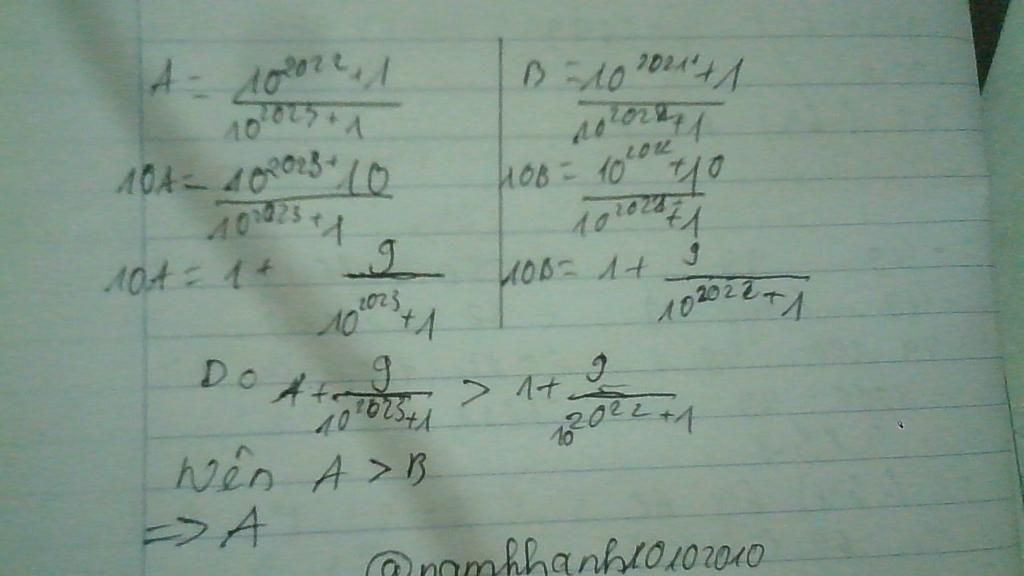 A = \frac{10^{2022}+1}{10^{2023}+1}
10A = \frac{10^{2023}+10}{10^{2023}+1}
10A = 1 + \frac{9}{10^{2023}+1}
B = \frac{10^{2021}+1}{10^{2022}+1}
10B = \frac{10^{2022}+10}{10^{2022}+1}
10B = 1 + \frac{9}{10^{2022}+1}
Do 1 + \frac{9}{10^{2023}+1} > 1 + \frac{9}{10^{2022}+1}
Nên A > B
=> A
@namkhanh10102010